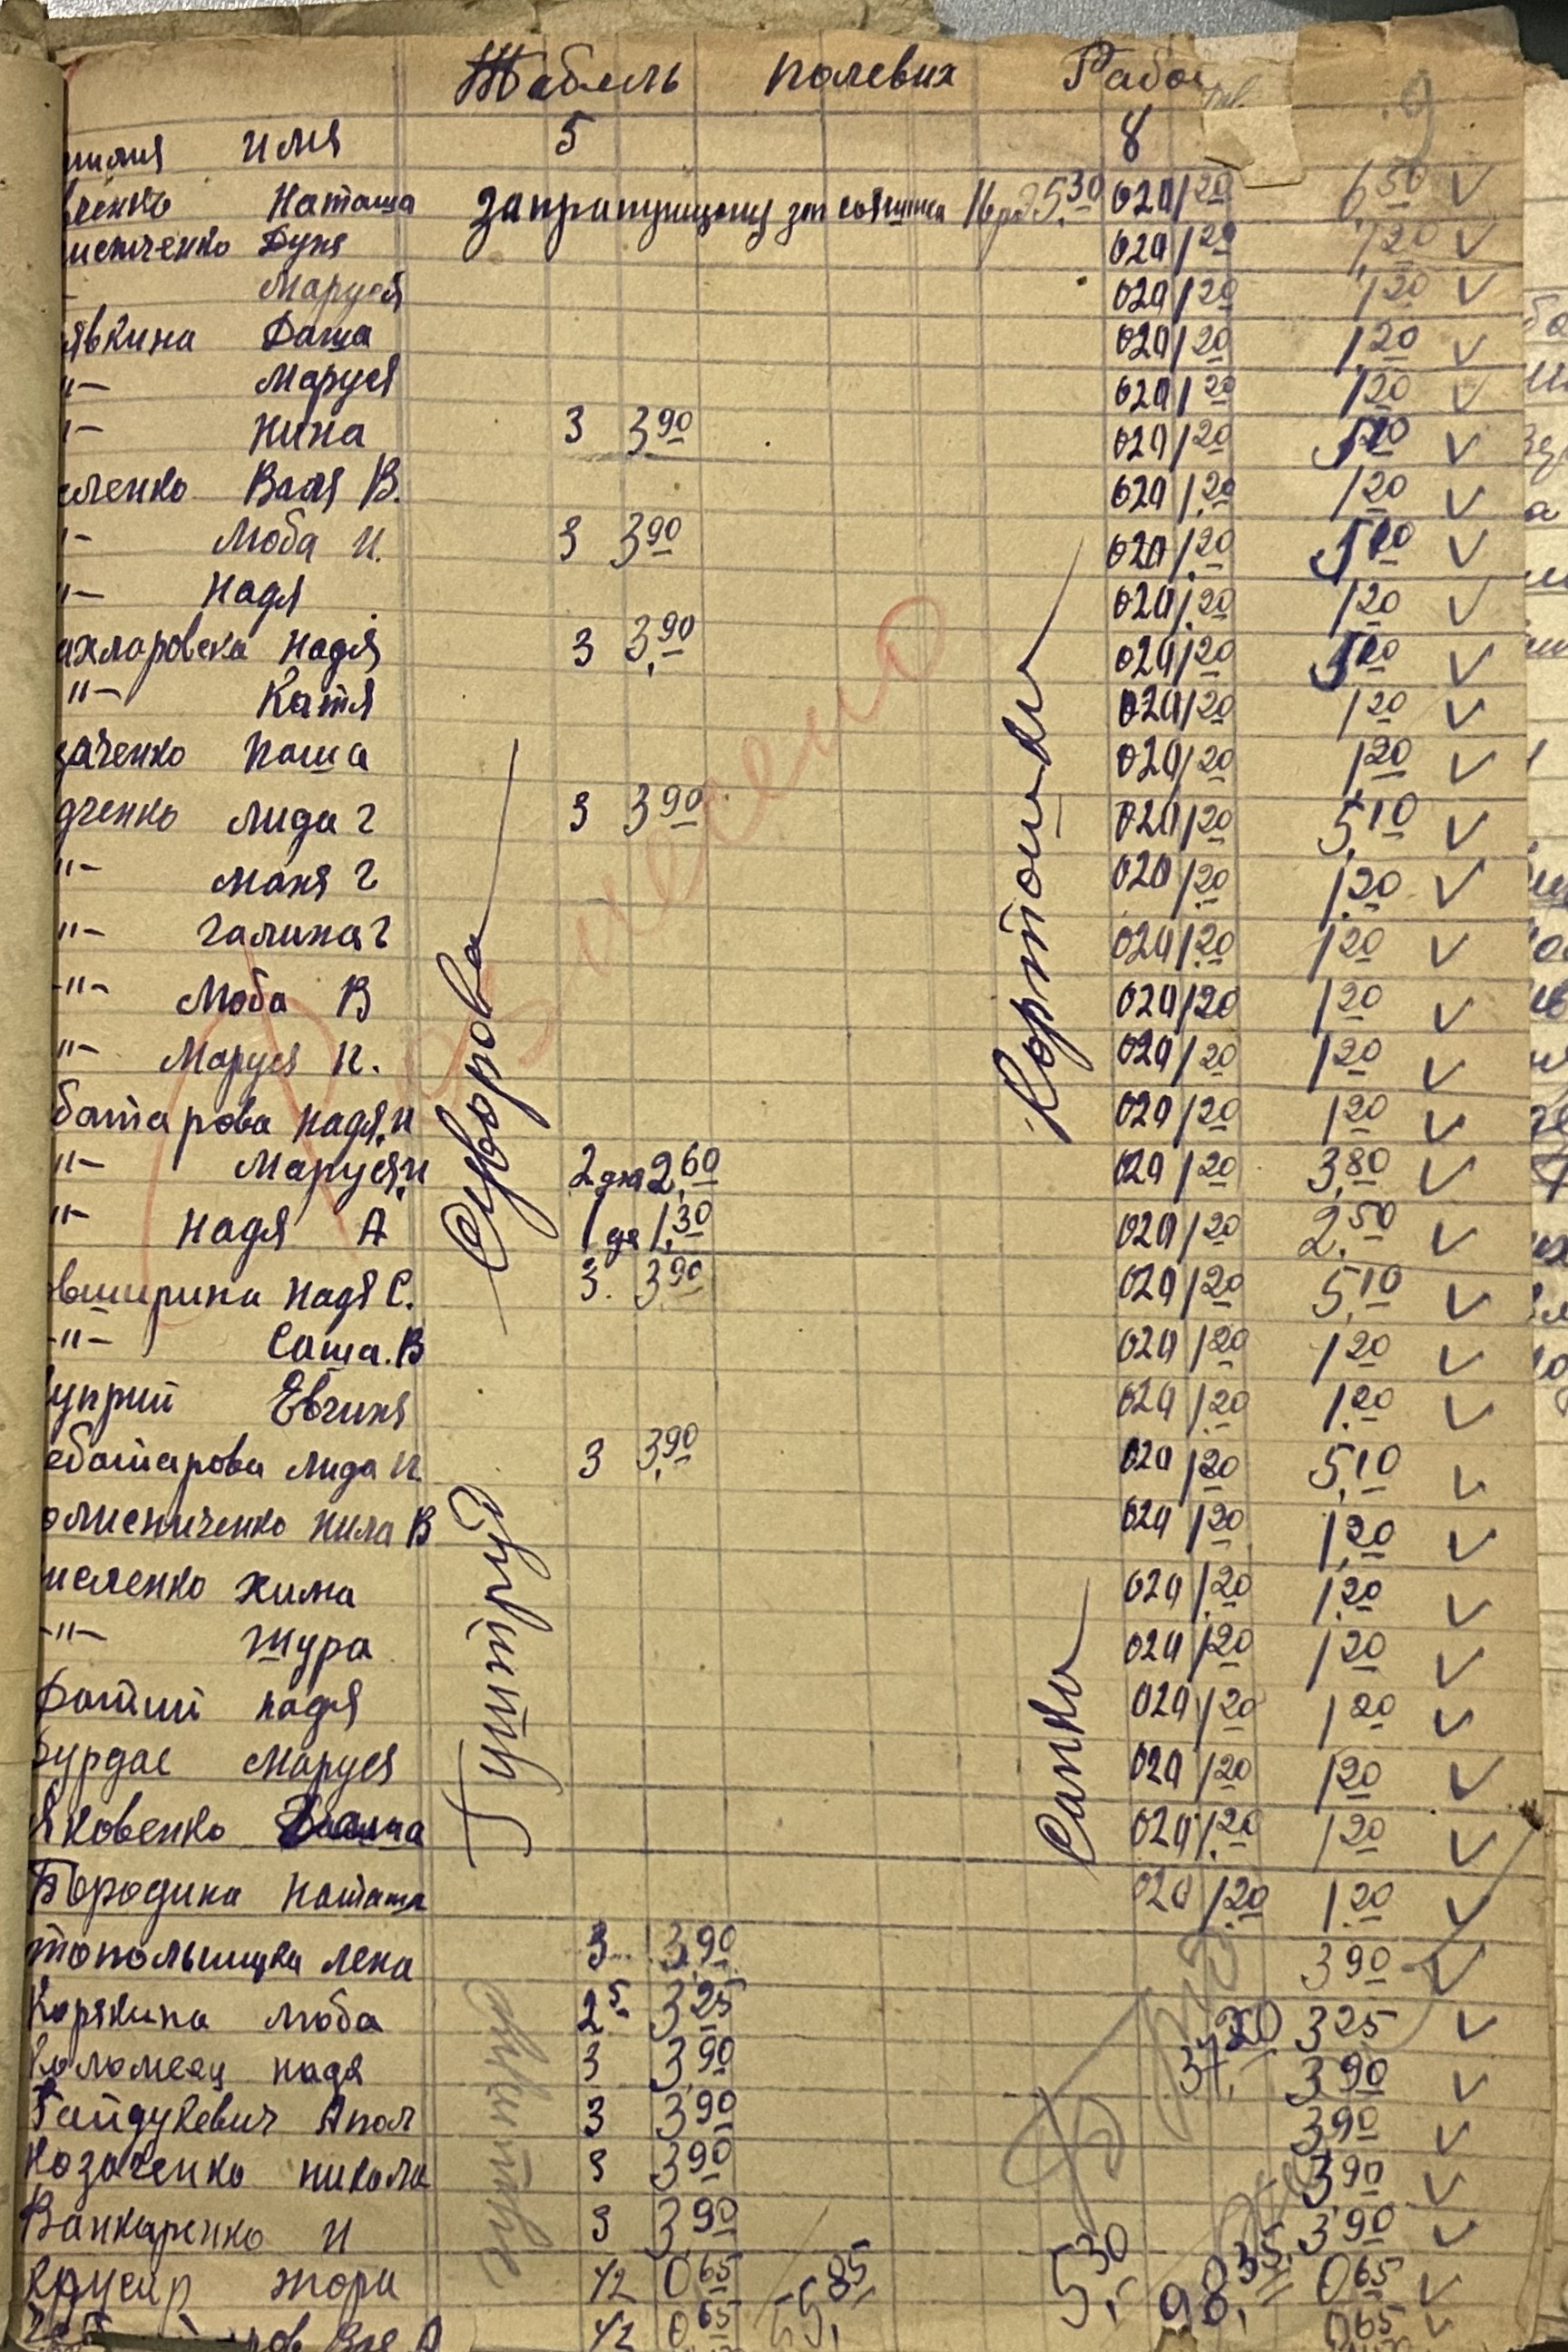 Табель полевих Рабо
имя 5 8
Наташа 5,30 020 1,20 6,50 V
Дуня 020 1,20 1,20 V
Маруся 020 1,20 1,20 V
явкина Даша 020 1,20 1,20 V
"- Маруся 020 1,20 1,20 V
"- Нина 3 3,90 020 1,20 5,10 V
еленко Валя В. 020 1,20 1,20 V
"- Люба И. 3 3,90 020 1,20 5,10 V
"- Надя 020 1,20 1,20 V
Надя 3 3,90 020 1,20 5,10 V
"- Катя 020 1,20 1,20 V
заченко Паша 020 1,20 1,20 V
дченко Лида Г 3 3,90 020 1,20 5,10 V
"- Маня Г 020 1,20 1,20 V
"- Галина Г 020 1,20 1,20 V
-"- Люба В 020 1,20 1,20 V
"- Маруся И. 020 1,20 1,20 V
ботарова Надя И 020 1,20 1,20 V
"- Маруся И 2 дня 2,60 020 1,20 3,80 V
"- Надя А 1 де 1,30 020 1,20 2,50 V
овширина Надя С. 3. 3,90 020 1,20 5,10 V
-"- Саша. В 020 1,20 1,20 V
уприй Евгиня 020 1,20 1,20 V
еботарова Лида И 3 3,90 020 1,20 5,10 V
олисниченко Нила В 020 1,20 1,20 V
иеленко Хима 020 1,20 1,20 V
-"- Шура 020 1,20 1,20 V
Фотий Надя 020 1,20 1,20 V
бурдае Маруся 020 1,20 1,20 V
Яковенко 020 1,20 1,20 V
Бородина Наташа 020 1,20 1,20 V
Лена 3 3,90 3,90 V
Корякина Люба 2,5 3,25 37,20 3,25 V
Коломеец Надя 3 3,90 3,90 V
Гайдукевич Апол 3 3,90 3,90 V
Козаченко Никола 3 3,90 3,90 V
Ванкаренко И 3 3,90 3,90 V
жора 1/2 0,65 55,85 5,30 98,35 0,65 V
1/2 0,65 0,65 V
Суворова
Гуштруд
Картошка
Сапка
Разнесено